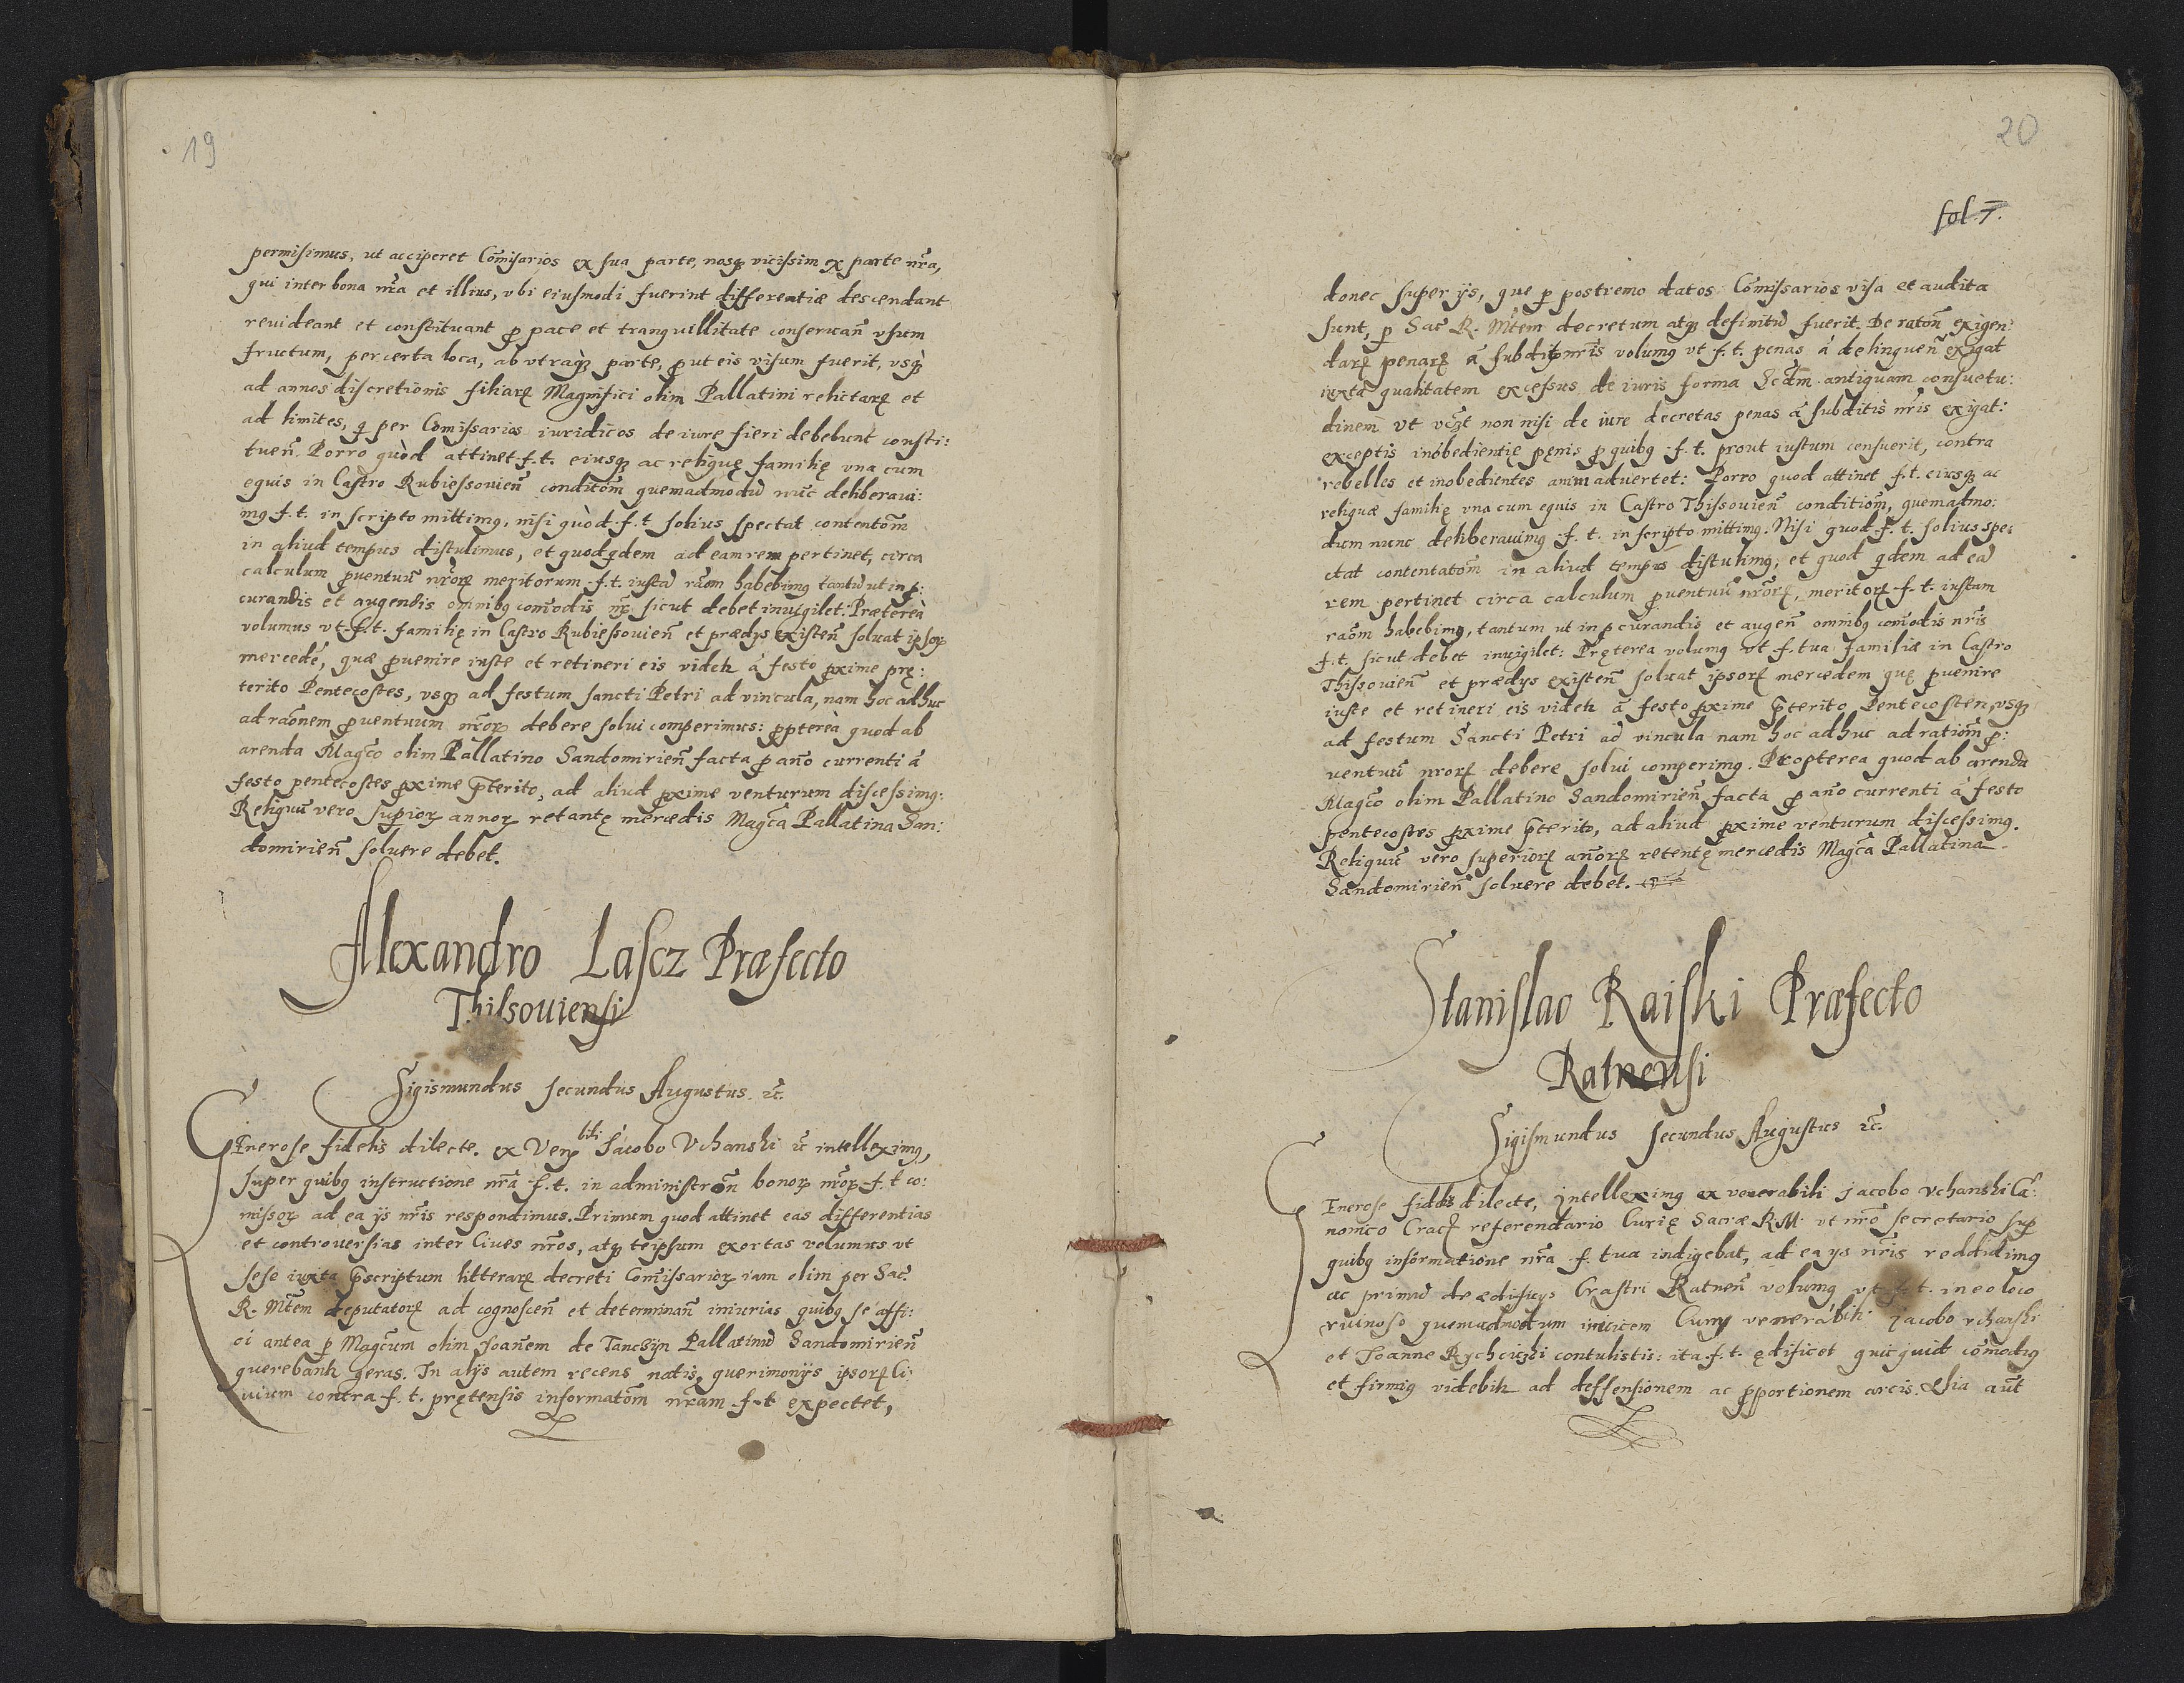 19
permisimus, ut acciperet Com̃isarios ex sua parte, nosq; vicissim ex parte nr̃a,
qui inter bona nr̃a et illius, vbi eiusmodi fuerint differentiæ descendant
reuideant et constituant ꝓ pace et tranquillitate conseruan̄ vsum
fructum, per certa loca, ab vtraq; parte, ꝓ ut eis visum fuerit, vsq;
ad annos discretionis filiarꝝ Magnifici olim Pallatini relictarꝝ et
ad limites, q̄ per Comissarios iuridicos de iure fieri debebunt consti:
tuen̄. Porro quòd attinet f. t. eiusq; ac reliquę familię vna cum
equis in Castro Rubiessouien̄ conditõm quemadmodũ nũc deliberaui:
mꝰ f. t. in scripto mittimꝰ, nisi quòd f. t solius spectat contentõm
in aliud tempus distulimus, et quod q̄dem ad eam rem pertinet, circa
calculum ꝓuentuũ nr̃orꝝ meritorum f. t. iustã rãom habebimꝰ tantũ ut in ꝓ:
curandis et augendis omnibꝰ com̃odis nr̃is sicut debet inuigilet: Præterea
volumus vt f. t. familię in Castro Rubiessouien̄ et prædijs existen̄ soluat ipsorꝝ
mercedẽ, quæ ꝓuenire iuste et retineri eis videtr à festo ꝓxime prę:
terito Pentecostes, vsq; ad festum sancti Petri ad vincula, nam hoc adhuc
ad raõnem ꝓuentuum nr̃orꝝ debere solui comperimus: ꝓpterea quod ab
arenda Magc̃o olim Pallatino Sandomirien̄ facta ꝓ año currenti à
festo pentecostes ꝓxime p̃terito, ad aliud ꝓxime venturum discessimꝰ:
Reliquũ vero supiorꝝ annorꝝ retantę mercedis Magc̃a Pallatina San:
domirien̄ soluere debet.
Alexandro Lascz Præfecto
Thissouiensi
Sigismundus secundus Augustus etc̃.
GEnerose fidelis dilecte. ex Venꝑbili Iacobo Vchanski etc̃ intelleximꝰ,
super quibꝰ instructione nr̃a f. t. in administrõn bonorꝝ nr̃orꝝ f. t co:
missorꝝ ad ea ijs nr̃is respondimus. Primum quod attinet eas differentias
et controuersias inter Ciues nr̃os, atq; teipsum exortas volumus vt
sese iuxta p̃scriptum litterarꝝ decreti Com̃issariorꝝ iam olim per Sac̃
R. Mt̃em deputatorꝝ ad cognoscen̄ et determinan̄ iniurias quibꝰ se affi:
ci antea ꝑ Magc̃um olim Joañem de Tanczijn Pallatinũ Sandomirien̄
querebantr geras. In alijs autem recens natis, querimonijs ipsorꝝ Ci:
uium contra f. t. prętensis informatõm nr̃am f. t expectet,
20
fol. 7.
donec super ijs, que ꝑ postremo datos Com̃issarios visa et audita
sunt, ꝑ Sac̃ R. Mt̃em decretum atq; definitũ fuerit. De ratõn exigen:
darꝝ penarꝝ à subditis nr̃is volumꝰ vt f. t. penas à delinquen̄ exigat
iuxta qualitatem excessus de iuris forma Scd̃m antiquam consuetu:
dinem vt vcꝫt non nisi de iure decretas penas à subditis nr̃is exigat:
exceptis inobedientię pęnis ꝓ quibꝰ f. t. prout iustum censuerit, contra
rebelles et inobedientes animaduertet: Porro quod attinet f. t. eiusq; ac
reliquæ familię vna cum equis in Castro Thissouien̄ conditiom̃, quemadmo:
dum nunc deliberauimꝰ f. t. in scripto mittimꝰ. Nisi quod f. t. solius spe:
ctat contentatõm in aliud tempus distulimꝰ, et quod q̄dem ad eã
rem pertinet circa calculum ꝓuentuũ nr̃orꝝ, meritorꝝ f. t. iustam
raõm habebimꝰ, tantum ut in ꝓcurandis et augen̄ omnibꝰ com̃odis nr̃is
f. t. sicut debet inuigilet: Pręterea volumꝰ vt f. tua familiæ in Castro
Thissouien̄ et prædijs existen̄ soluat ipsorꝝ mercedem quę ꝓuenire
iuste et retineri eis videtr à festo ꝓxime p̃terito Pentecosten, vsq;
ad festum Sancti Petri ad vincula nam hoc adhuc ad ratiom̃ ꝓ:
uentuũ nrorꝝ debere solui comperimꝰ. Propterea quod ab arenda
Magc̃o olim Pallatino Sandomirien̄ facta ꝓ año currenti à festo
pentecostes ꝓxime p̃terito, ad aliud ꝓxime venturum discessimꝰ.
Reliquũ vero superiorꝝ añorꝝ retentę mercedis Magc̃a Pallatina
Sandomirien̄ soluere debet.
Stanislao Raiski Præfecto
Ratnensi
Sigismundus secundus Augustus etc̃.
GEnerose fidelis dilecte, intelleximꝰ ex venerabili Jacobo Vchanski Cã:
nonico Crac̃ referendario Curię Sacræ R M. vt nr̃o secretario sup̱
quibꝰ informatione nr̃a f. tua indigebat, ad ea ijs nr̃is reddidimꝰ
ac primũ de ædificijs Crastri Ratnen̄ volumꝰ vt f. t. in eo loco
ruinoso quemadmodum inuicem Cum venerabili Jacobo vchanski
et Ioanne Rychcuzki contulistis: ita f. t. ędificet quicquid com̃odiꝰ
et firmiꝰ videbitr ad deffensionem ac ꝓportionem arcis. Alia aut̃